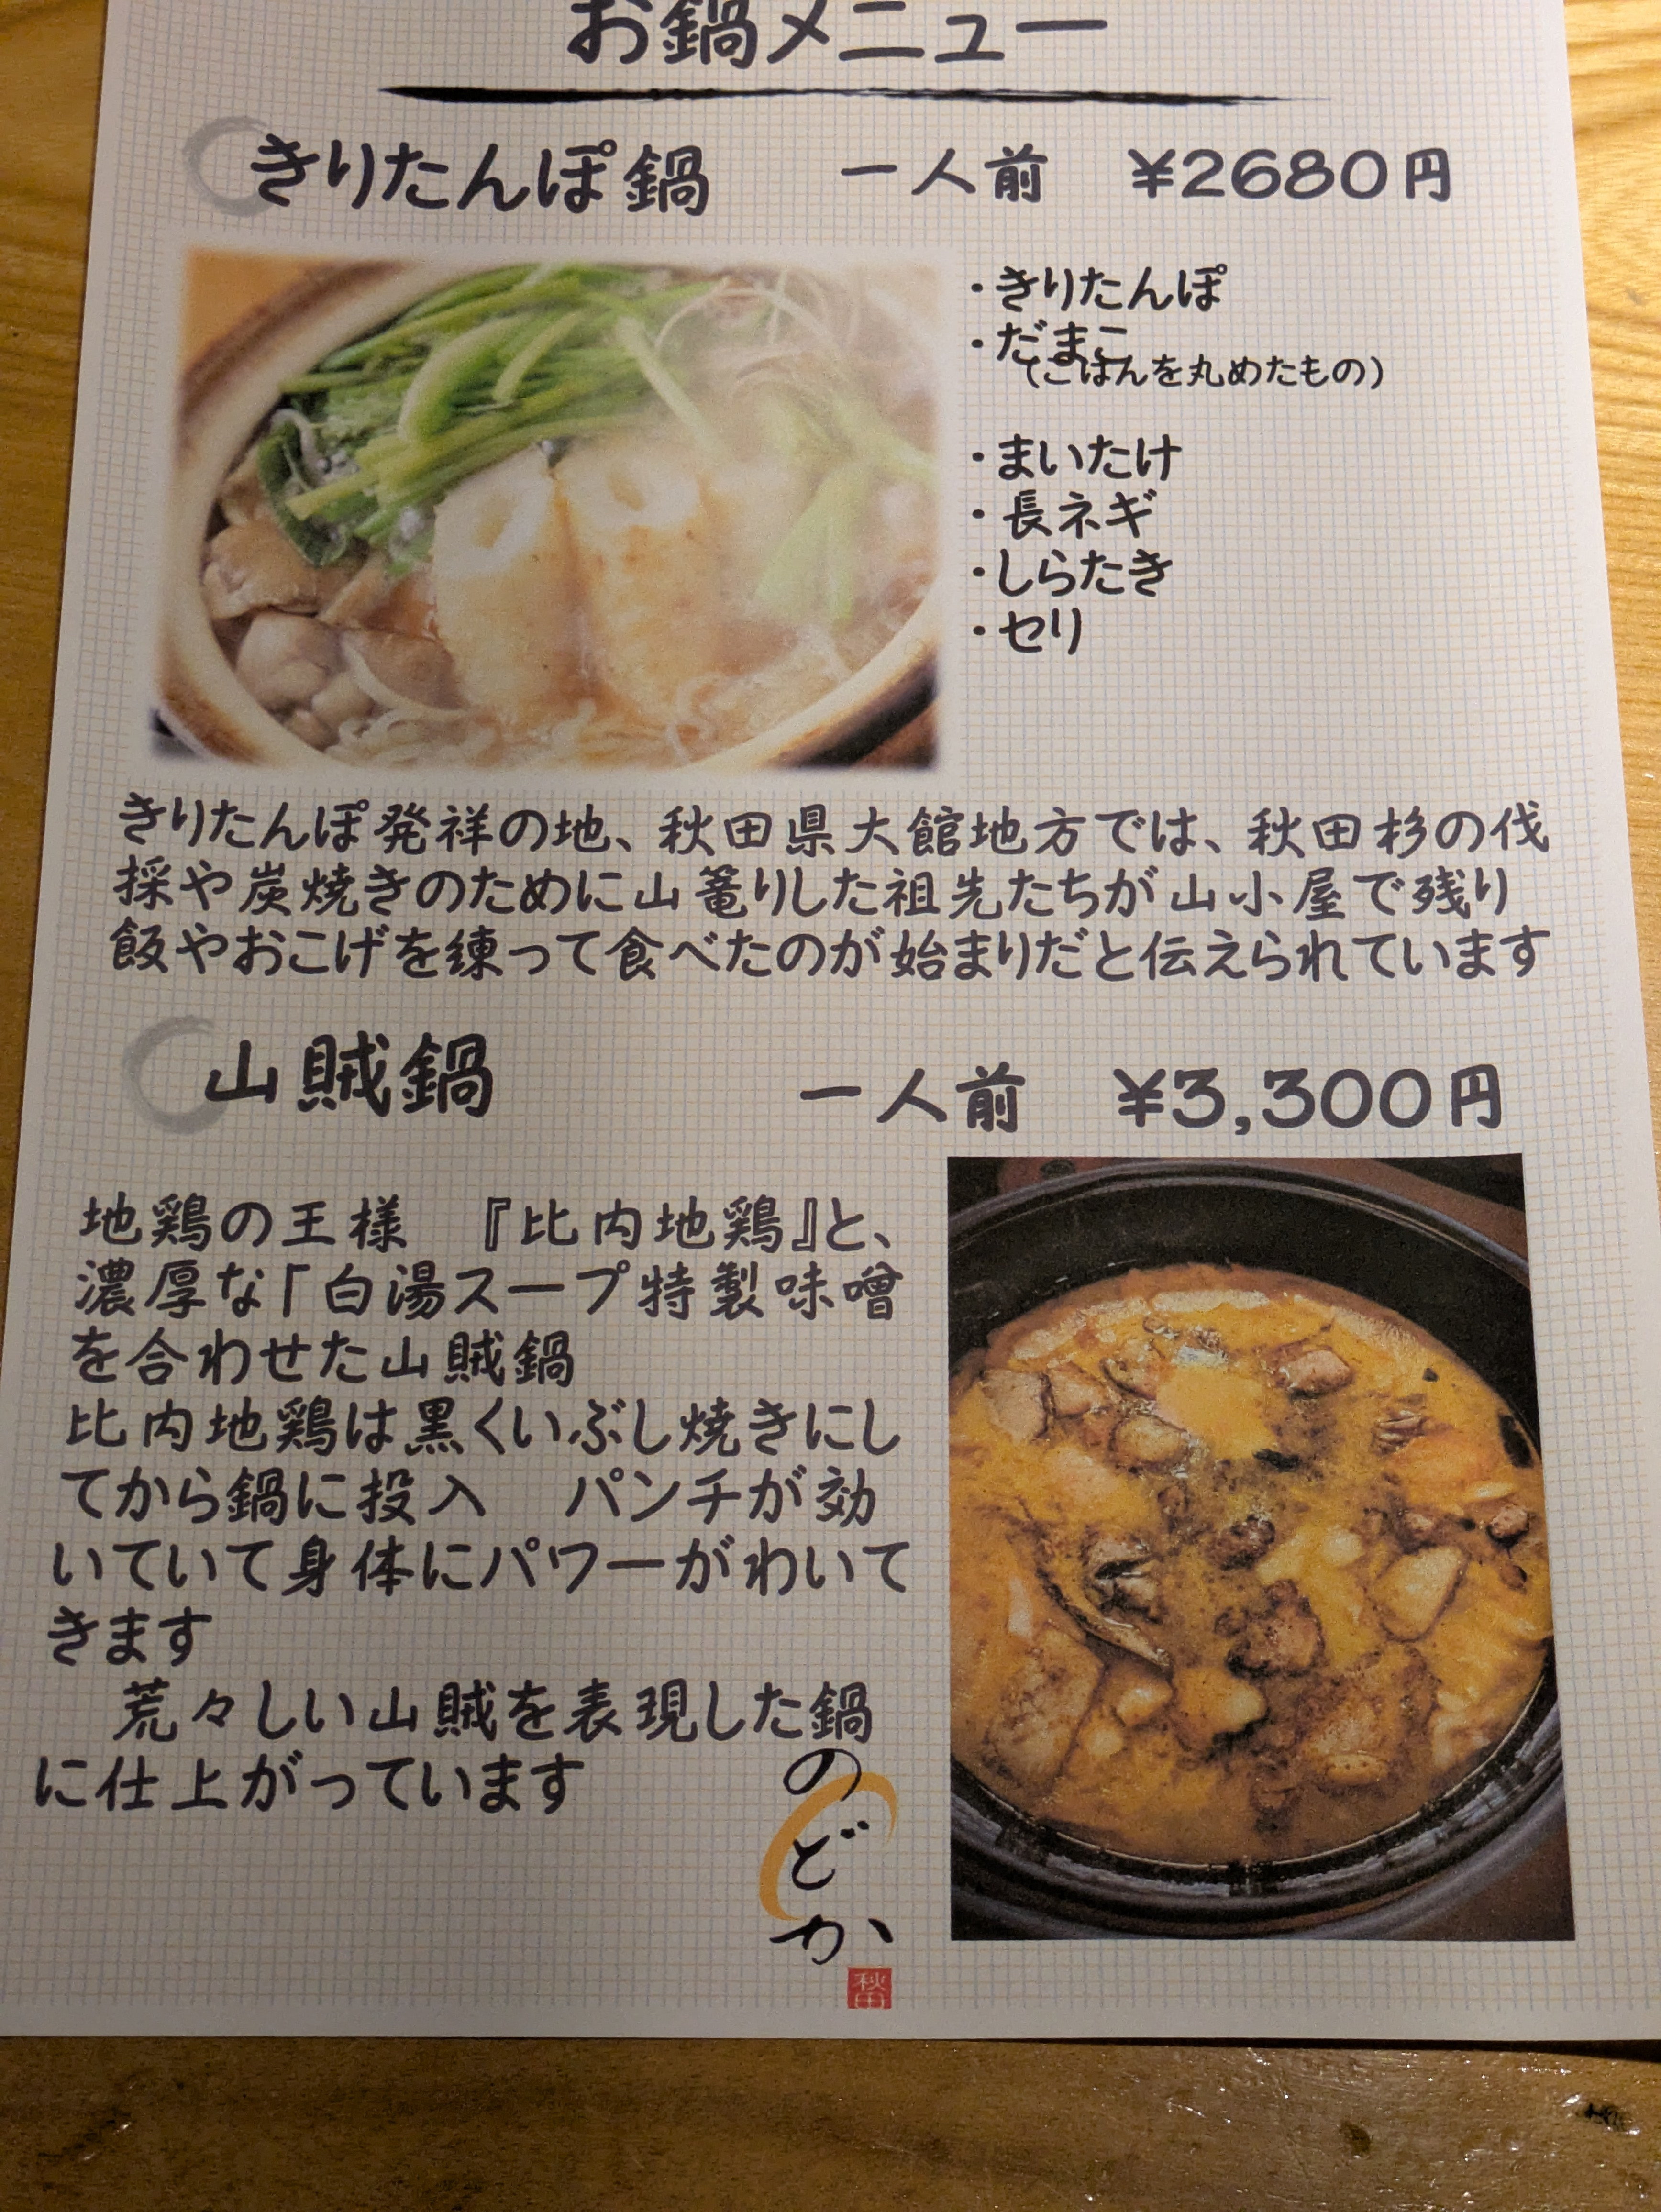 お鍋メニュー
きりたんぽ鍋 一人前 ¥2680円
・きりたんぽ
・だまこ
(ごはんを丸めたもの)
・まいたけ
・長ネギ
・しらたき
・セリ
きりたんぽ発祥の地、秋田県大館地方では、秋田杉の伐
採や炭焼きのために山篭りした祖先たちが山小屋で残り
飯やおこげを練って食べたのが始まりだと伝えられています
山賊鍋 一人前 ¥3,300円
地鶏の王様 『比内地鶏』と、
濃厚な「白湯スープ特製味噌
を合わせた山賊鍋
比内地鶏は黒くいぶし焼きにし
てから鍋に投入 パンチが効
いていて身体にパワーがわいて
きます
荒々しい山賊を表現した鍋
に仕上がっています
のどか
秋田